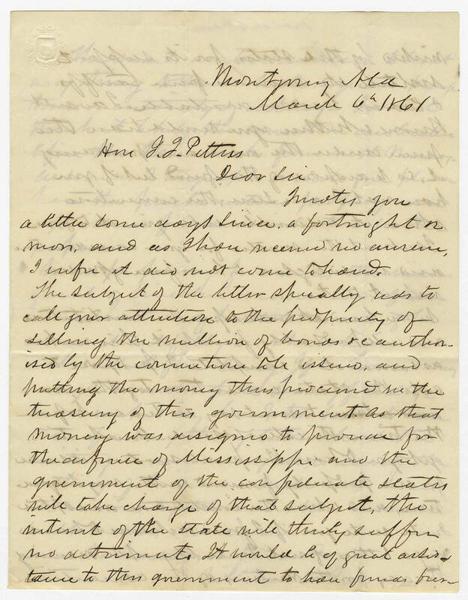 Montgomery Ala
March 6th 1861
Hon J. J. Pettus
Dear Sir
I wrote you
a letter some days since, a fortnight or
more, and as I have received no answer,
I infer it did not come to hand.
The subject of the letter specially was to
call your attention to the propriety of
selling the million of bonds &c author-
ised by the convention to be issued, and
putting the money thus procured in the
treasury of this government. As that
money was designed to provide for
the defence of Mississippi and the
government of the confederate states
will take charge of that subject, the
interest of the state will thereby suffer
no detriment. It would be of great assis-
tance to this government to have funds